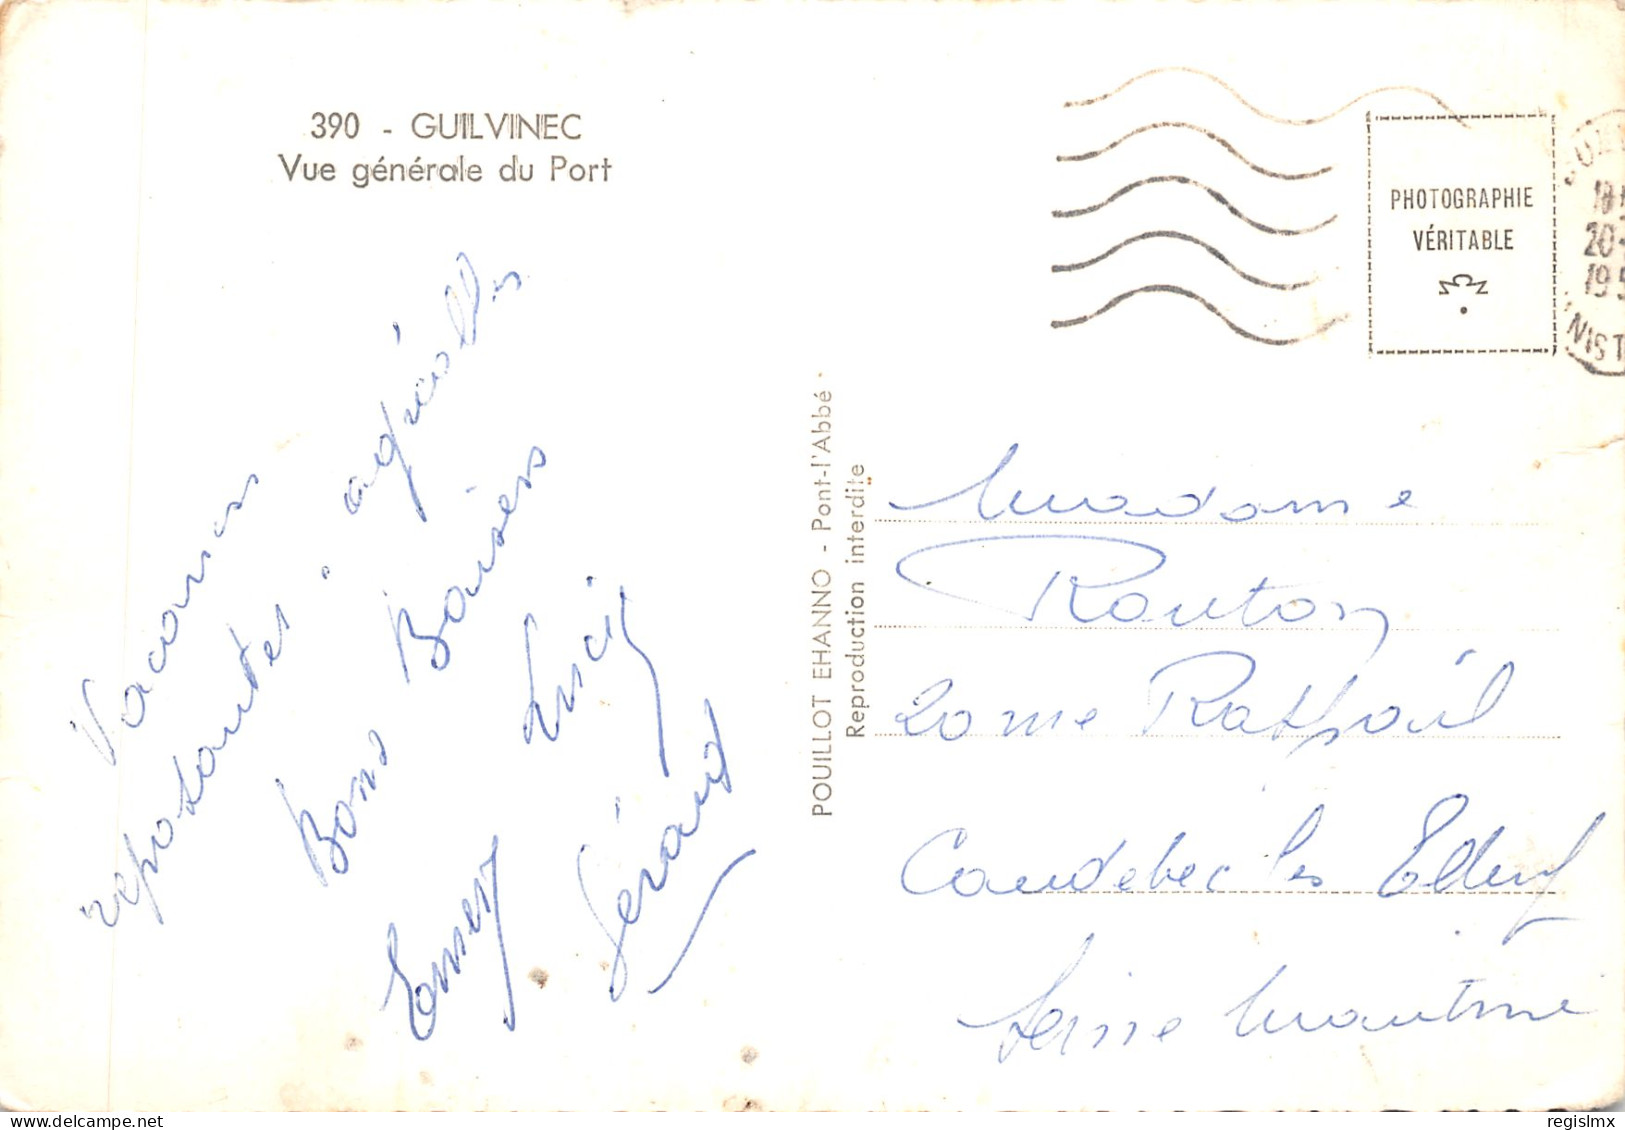 390 - GUILVINEC
Vue générale du Port
Vacances
reposantes agréables
Bons Baisers
Lucie
Gérard
PHOTOGRAPHIE
VÉRITABLE
20
195
NIST
POUILLOT EHANNO - Pont-l'Abbé
Reproduction interdite
Madame
Routon
20 rue Raspail
Caudebec les Elbeuf
Seine Maritime
regislmx